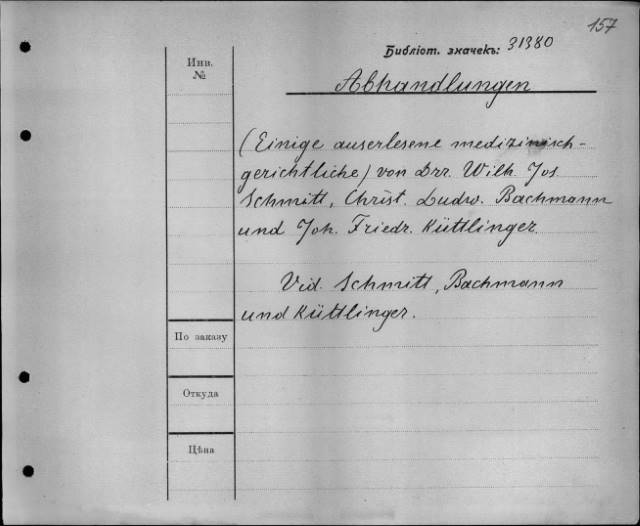 157
Библіот. значекъ: 31380
Инв.
№
Abhandlungen
(Einige auserlesene medizinisch-
gerichtliche) von Drr. Wilh. Jos.
Schmitt, Christ. Ludw. Bachmann
und Joh. Friedr. Küttlinger.
Vid. Schmitt, Bachmann
und Küttlinger.
По заказу
Откуда
Цѣна